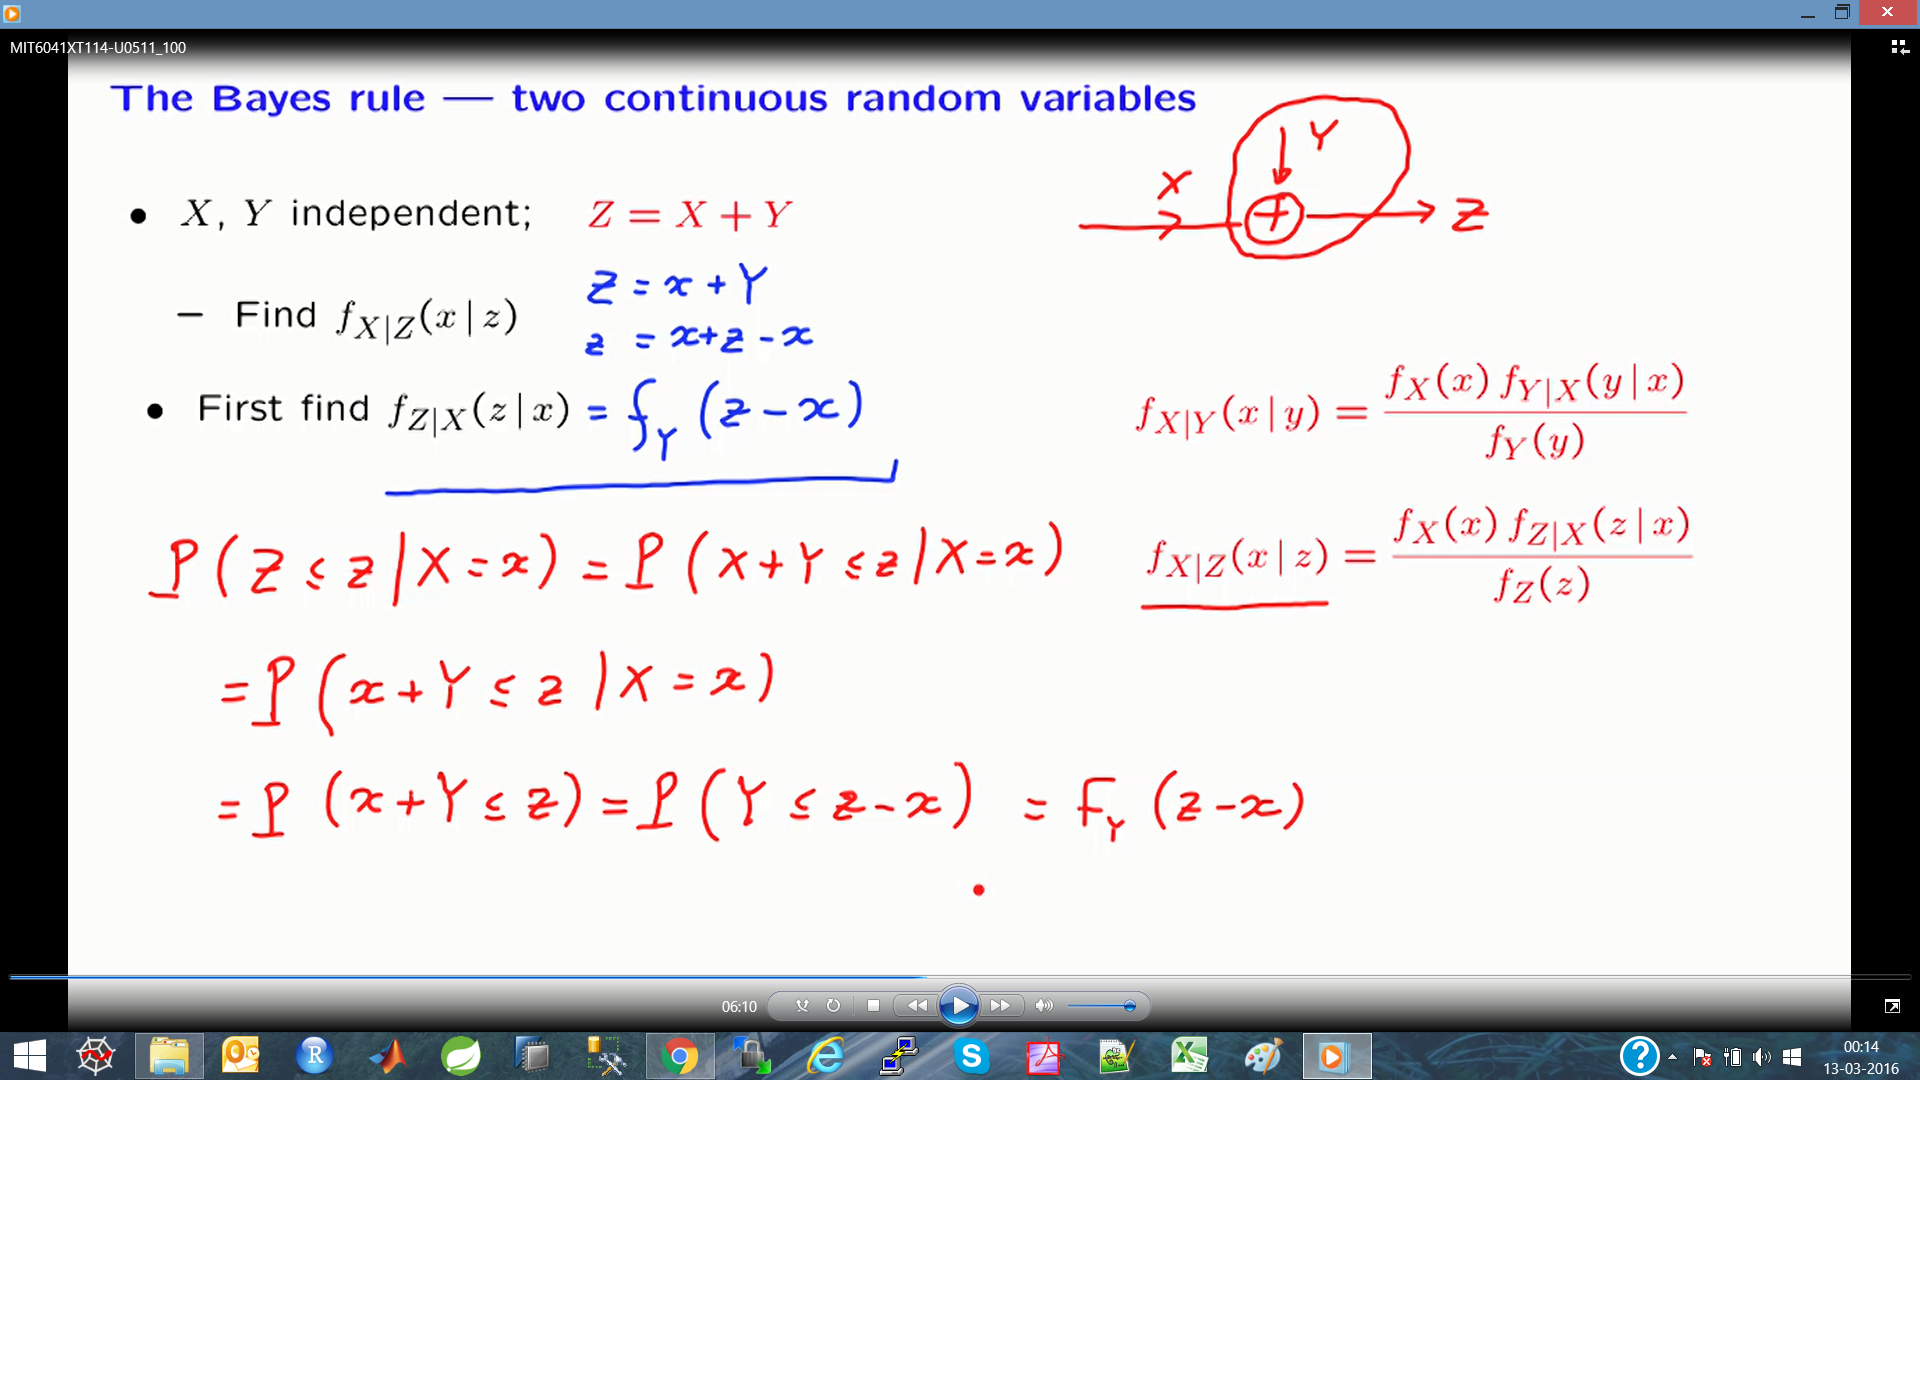 MIT6041XT114-U0511_100
The Bayes rule — two continuous random variables
Y
X
Z
• X, Y independent; Z = X + Y
Z = x + Y
– Find f_{X|Z}(x | z)
z = x + z - x
• First find f_{Z|X}(z | x) = f_Y (z - x)
f_{X|Y}(x | y) = f_X(x) f_{Y|X}(y | x) / f_Y(y)
f_{X|Z}(x | z) = f_X(x) f_{Z|X}(z | x) / f_Z(z)
P(Z ≤ z | X = x) = P(X + Y ≤ z | X = x)
= P(x + Y ≤ z | X = x)
= P(x + Y ≤ z) = P(Y ≤ z - x) = F_Y (z - x)
06:10
00:14
13-03-2016